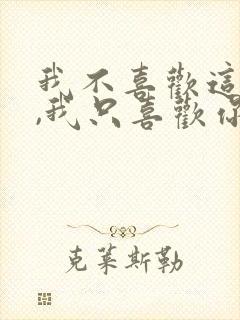 我不喜歡這
,我只喜歡你
克萊斯勒